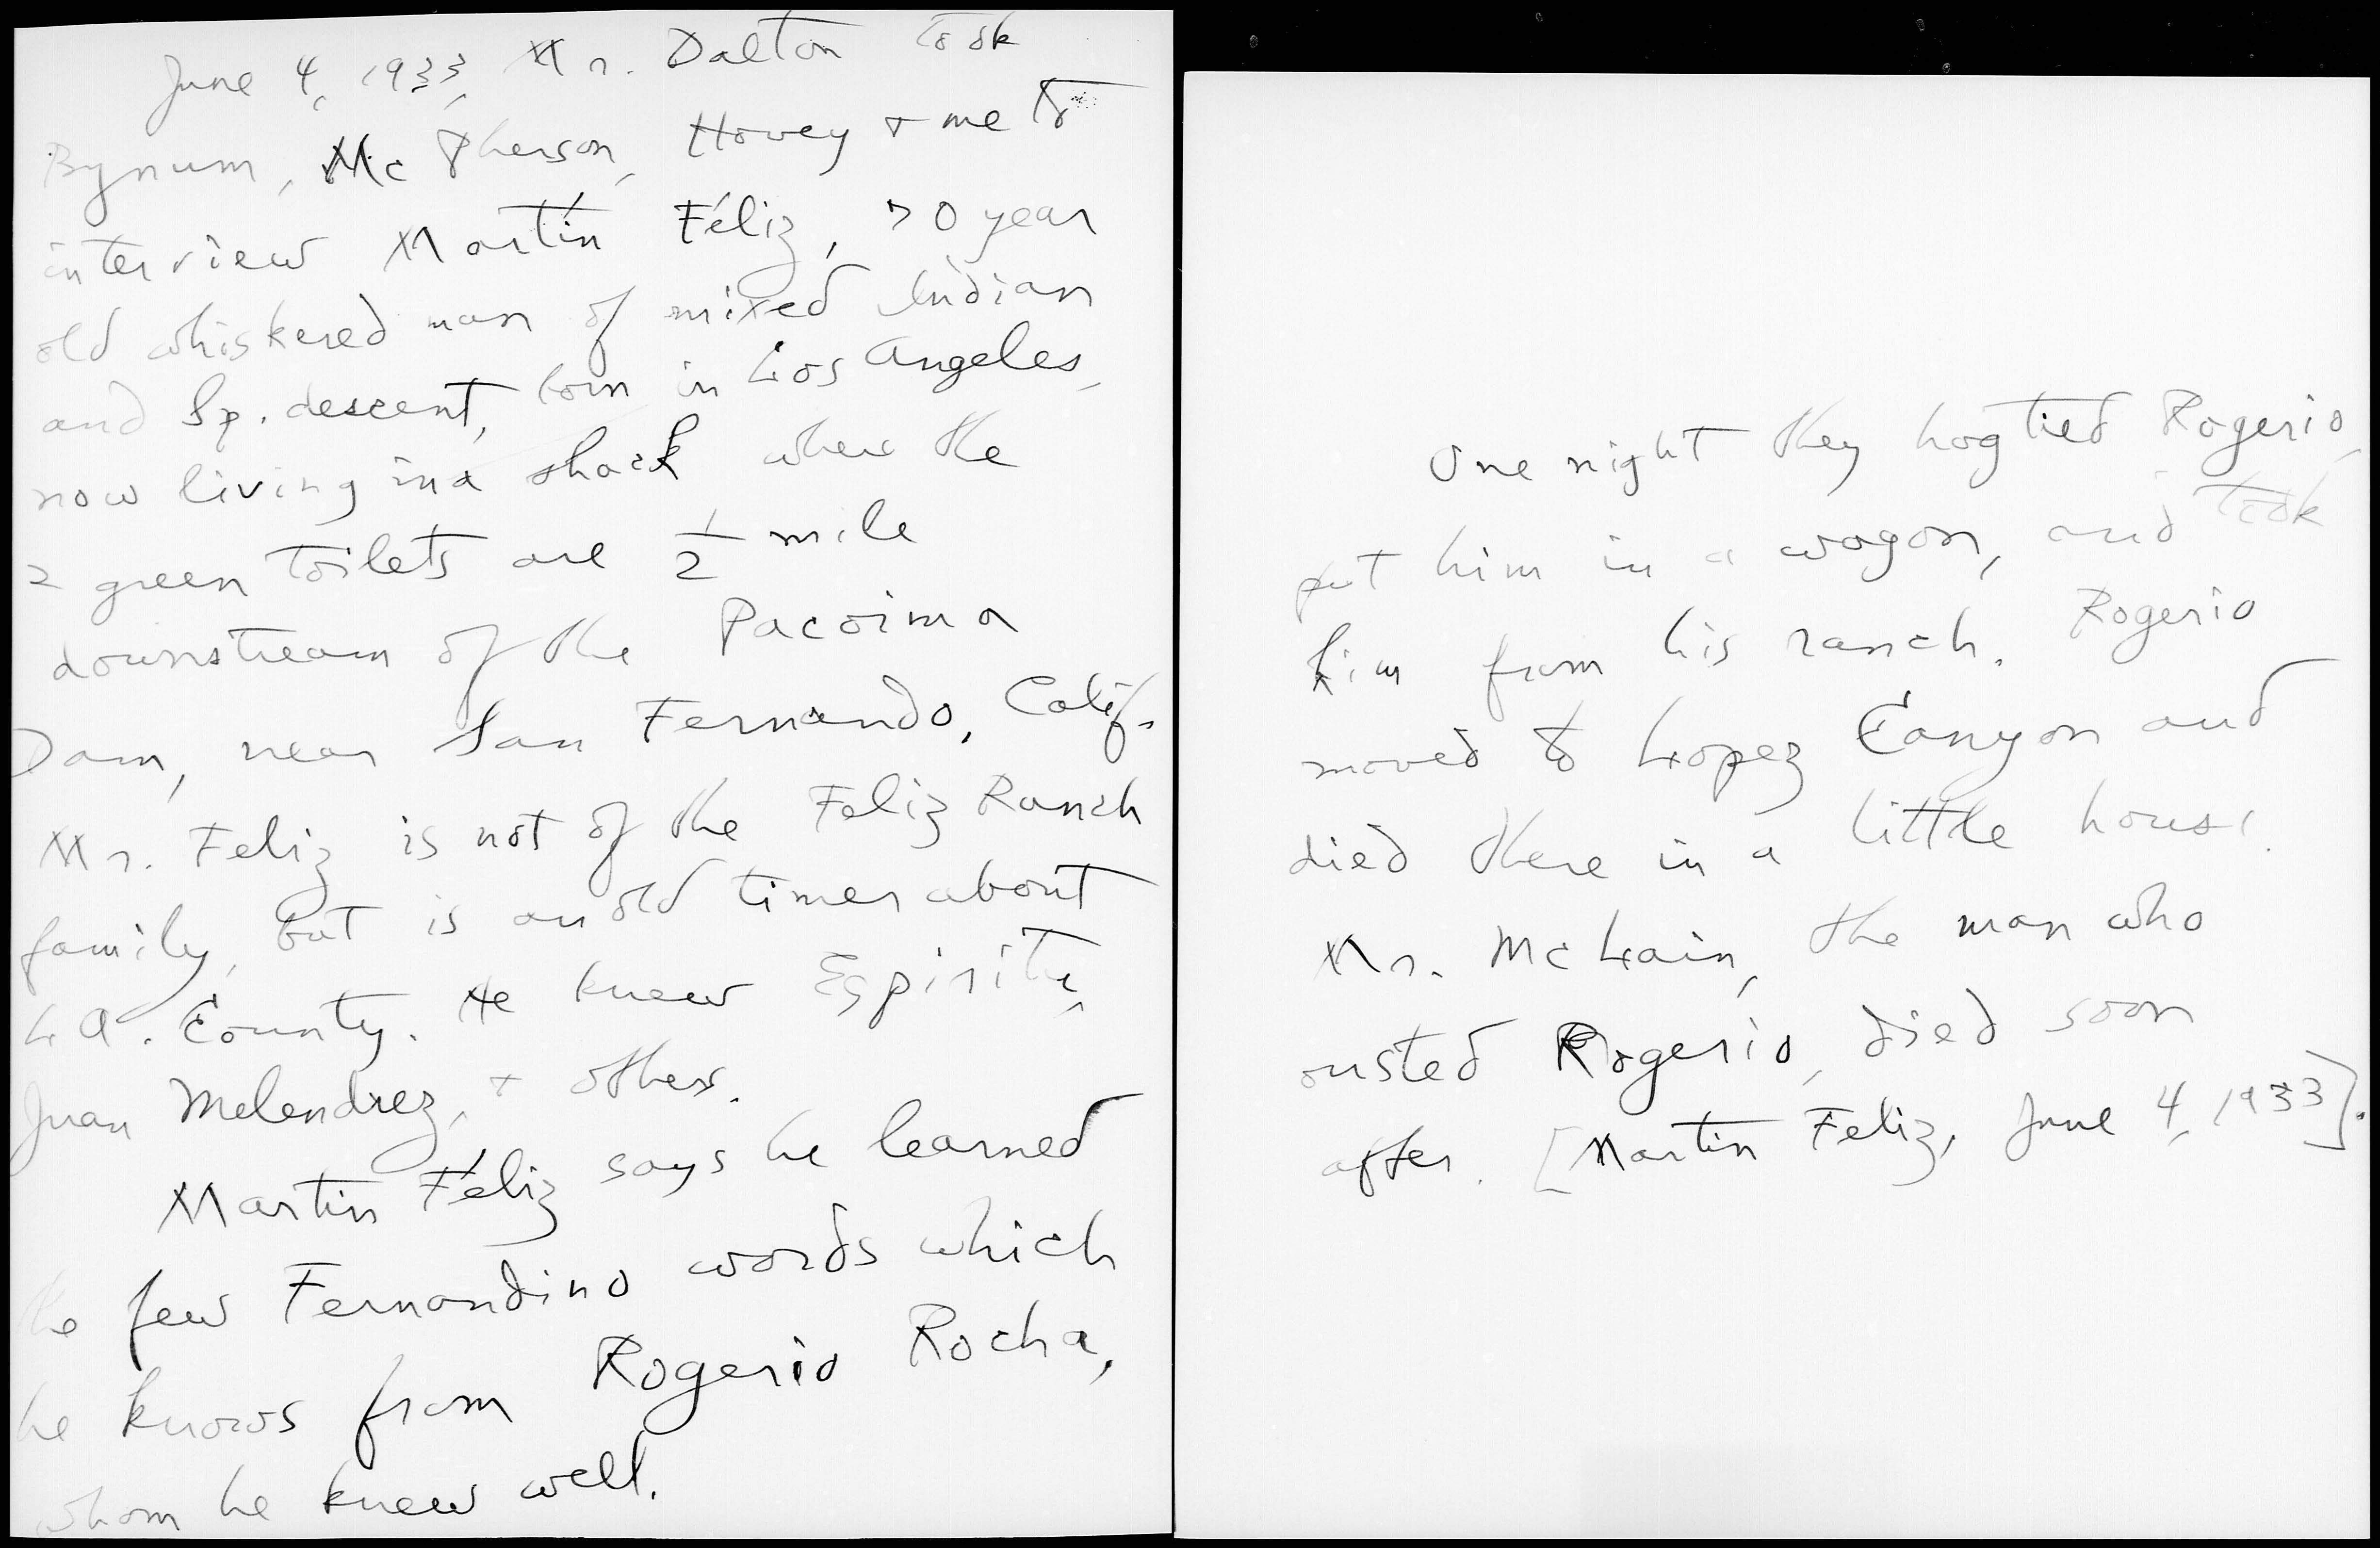 June 4, 1933, Mr. Dalton took
Bynum, Mc Pherson, Hovey + me to
interview Martín Féliz, 70 year
old whiskered man of mixed Indian
and Sp. descent, born in Los Angeles,
now living in a shack where the
2 green toilets are 1/2 mile
downstream of the Pacoima
Dam, near San Fernando, Calif.
Mr. Feliz is not of the Feliz Ranch
family, but is an old timer about
L.A. County. He knew Espiritu,
Juan Melendrez, + others.
Martin Féliz says he learned
the few Fernandino words which
he knows from Rogerio Rocha,
whom he knew well.
One night they hog tied Rogerio,
put him in a wagon, and took
him from his ranch. Rogerio
moved to Lopez Canyon and
died there in a little house.
Mr. McLain, the man who
ousted Rogerio, died soon
after. [Martin Feliz, June 4, 1933].